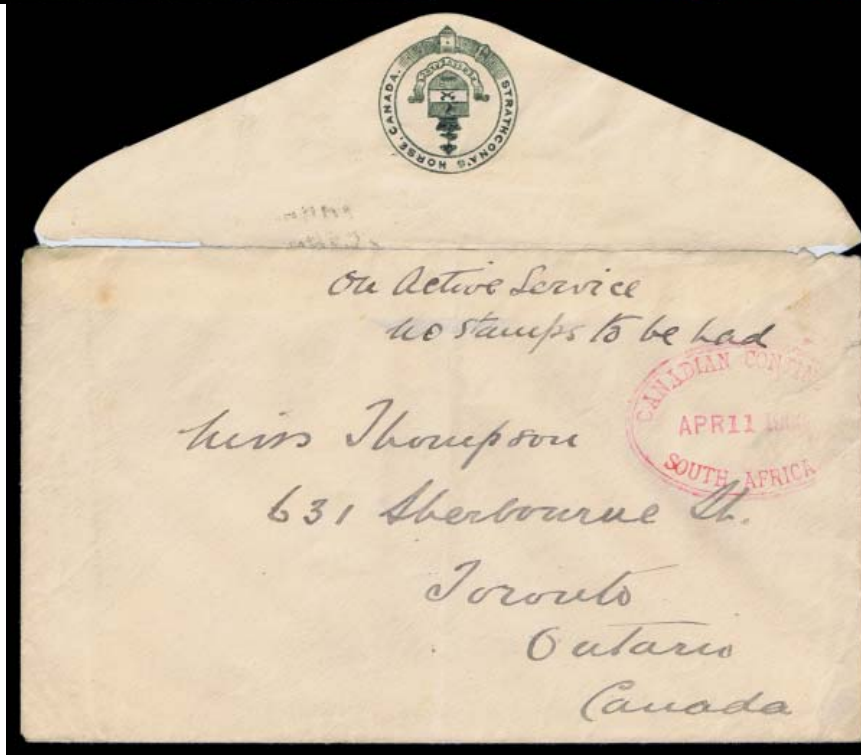 STRATHCONA'S HORSE, CANADA.
On Active Service
no stamps to be had
CANADIAN
APR 11
SOUTH AFRICA
Miss Thompson
631 Sherbourne St.
Toronto
Ontario
Canada